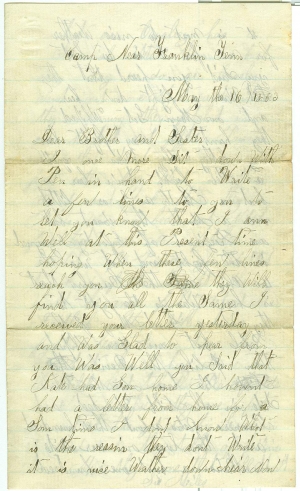 Camp Near Franklin Tenn
May the 16
Dear Brother and Sister
I once more sit down with
Pen in hand to Write
a few lines to you to
let you know that I am
Well at this Present time
hoping when these
reach you the Same they Will
find you all the Same I
received your letter yesterday
and was Glad to hear
you Was Well you Said that
Kate had gon home I havent
had a letter from home for a
long time I dont know What
is the reason they dont Write
it is nice Wather down hear